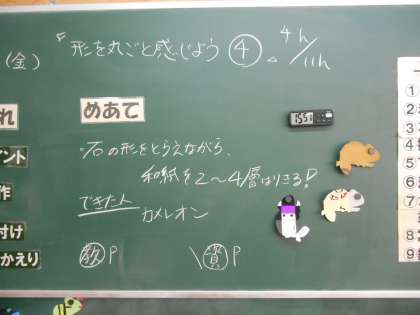 (金)
『形を丸ごと感じよう④。4h/11h
れ
めあて
15:51
イント
・石の形をとらえながら、
和紙を2~4層はりきる!
作
できた人
カメレオン
付け
教P
資P
かえり
①
②
③
④
⑤
⑥
⑦
8
9